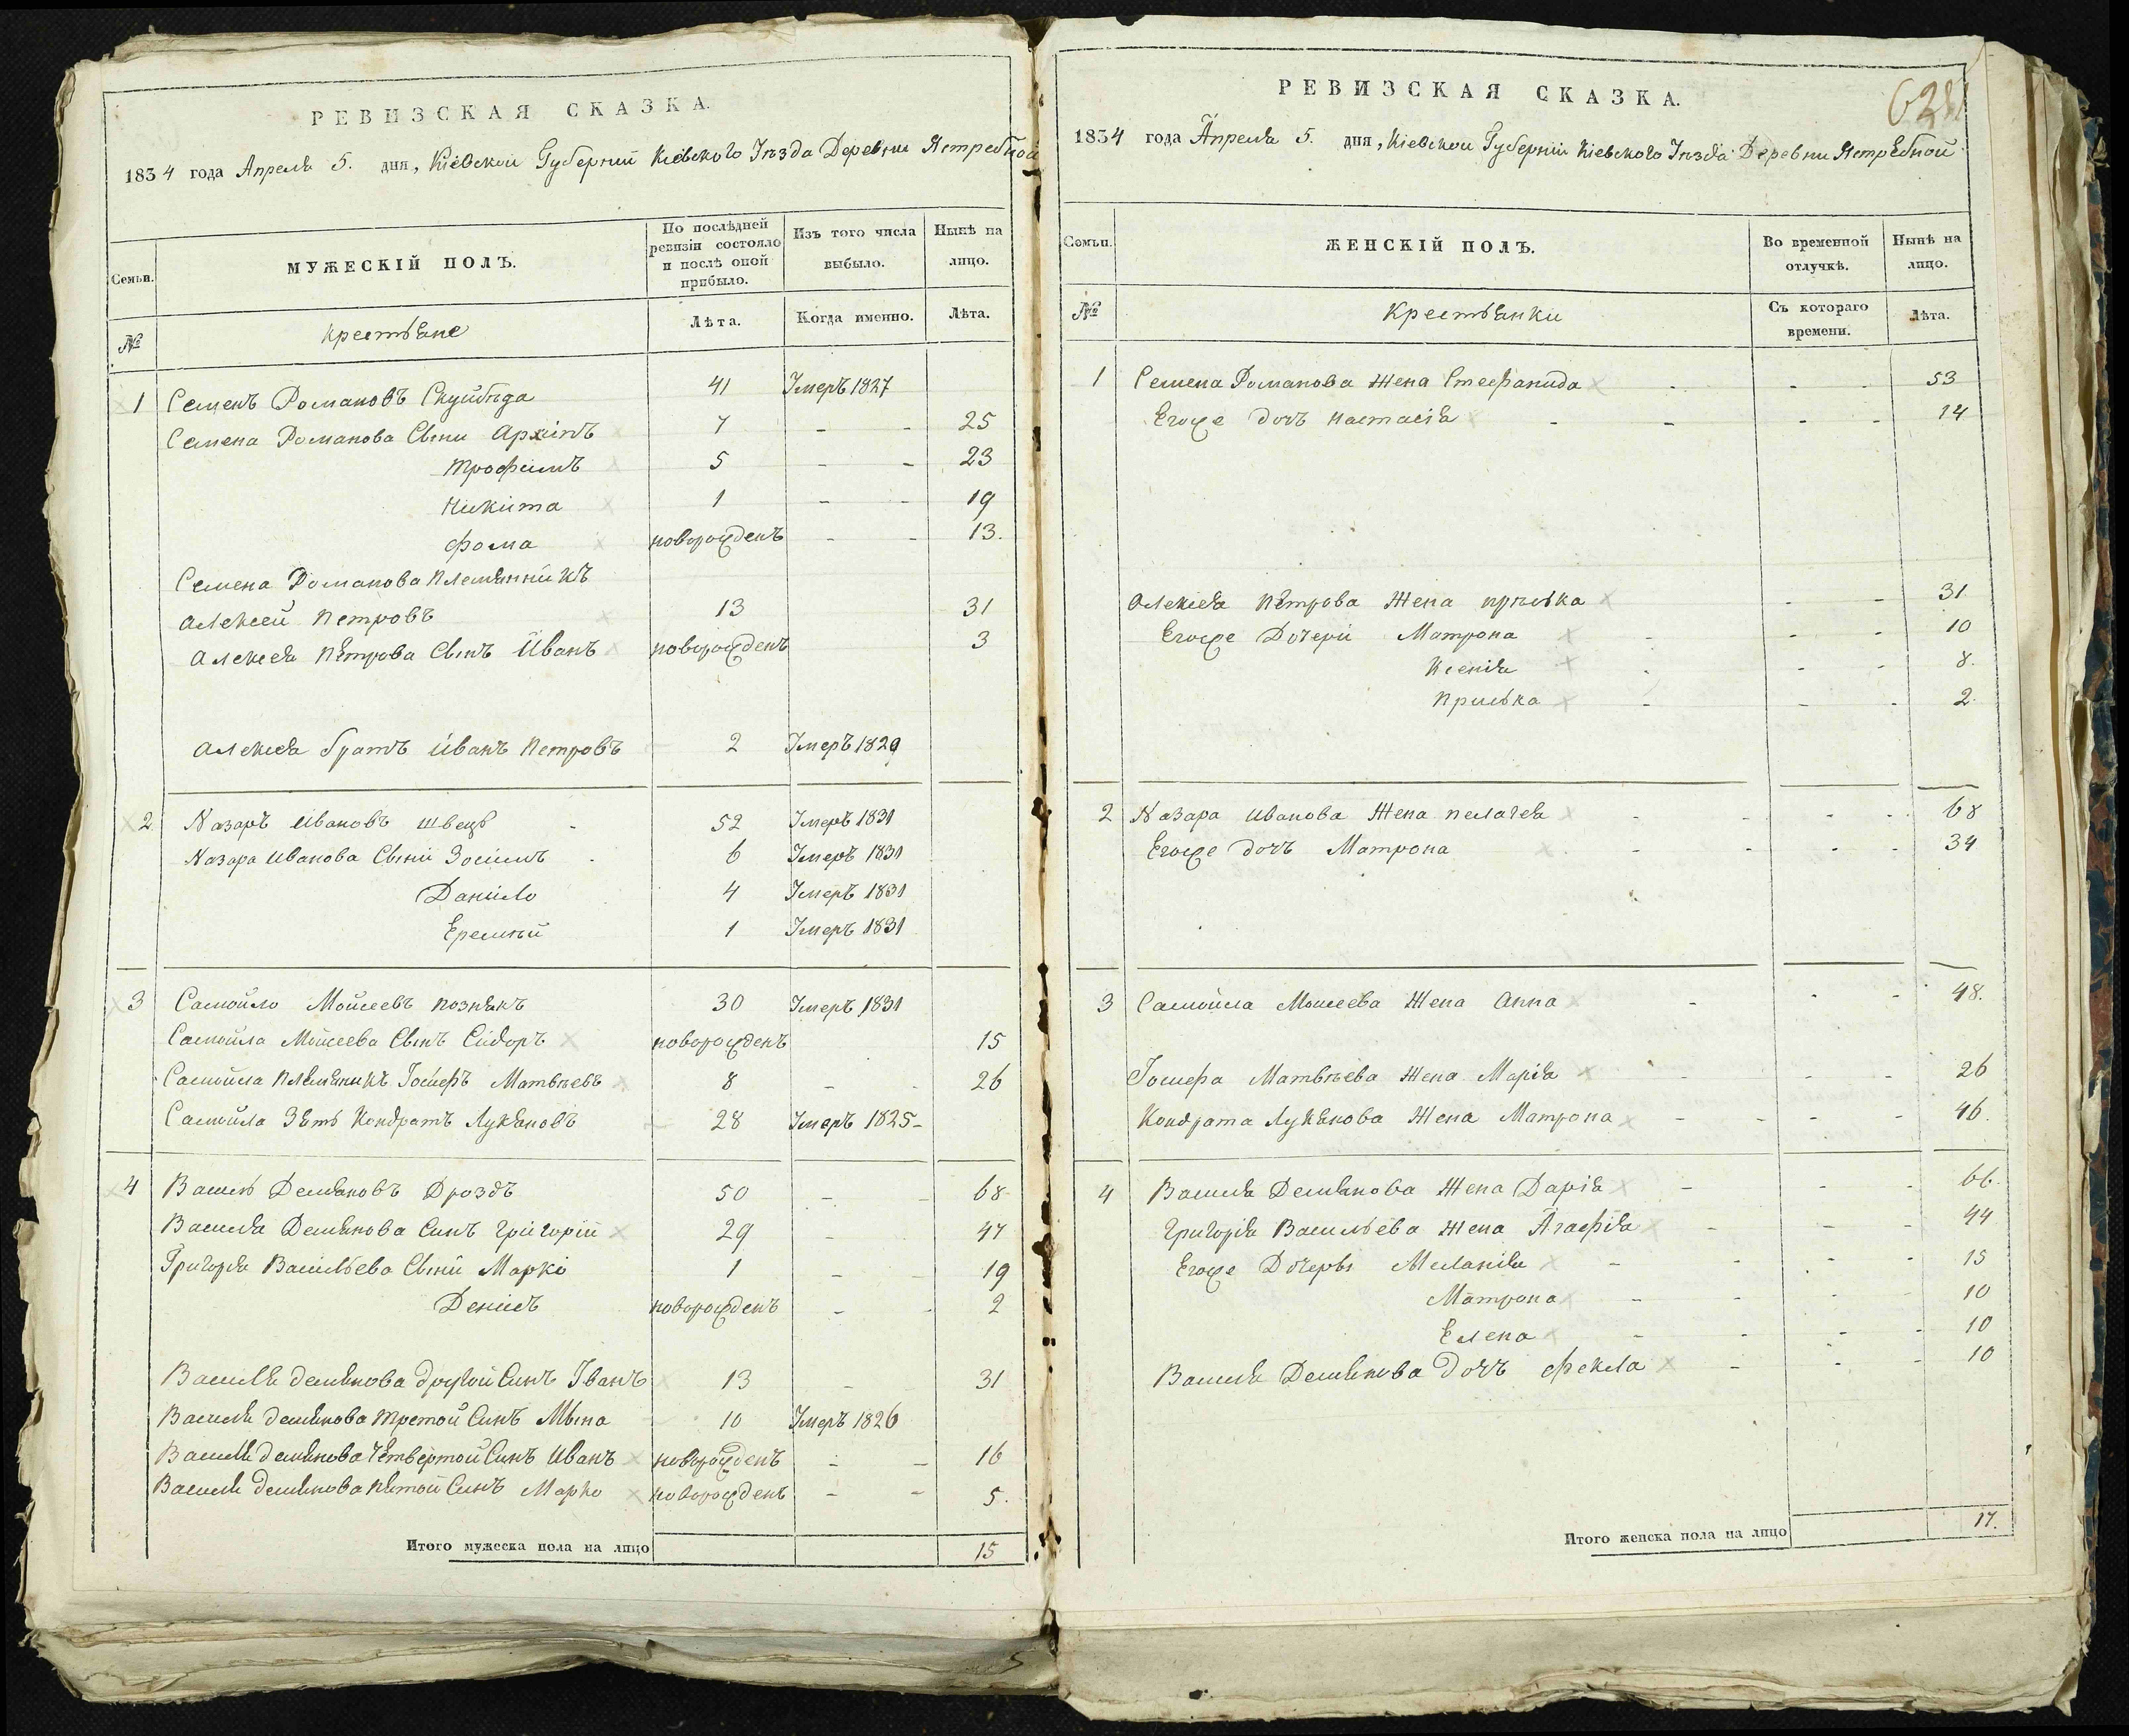 РЕВИЗСКАЯ СКАЗКА.
1834 года Апреля 5. дня, Кіевской Губерніи Кіевского Уѣзда Деревни Ястребной
Семьи.
МУЖЕСКІЙ ПОЛЪ.
По послѣдней ревизіи состояло и послѣ оной прибыло.
Изъ того числа выбыло.
Нынѣ на лицо.
№
Крестьяне
Лѣта.
Когда именно.
Лѣта.
1 Семенъ Романовъ Скуйбѣда 41 Умеръ 1827
Семена Романова Сыни Архипъ 7 - - 25
Трофимъ 5 - - 23
Никита 1 - - 19
Фома новорожденъ - - 13.
Семена Романова Племянникъ
Алексей Петровъ 13 31
Алексея Петрова Сынъ Иванъ новорожденъ 3
Алексея братъ Иванъ Петровъ 2 Умеръ 1829
2 Назаръ Ивановъ Швецъ - 52 Умеръ 1831
Назара Иванова Сыни Зосимъ 6 Умеръ 1831
Данило 4 Умеръ 1831
Еремѣй 1 Умеръ 1831
3 Самойло Мойсеевъ Познякъ 30 Умеръ 1831
Самойла Мойсеева Сынъ Сидоръ новорожденъ 15
Самойла Племяникъ Іосифъ Матвѣевъ 8 - - 26
Самойла Зять Кондратъ Лукяновъ 28 Умеръ 1825-
4 Василь Демяновъ Дроздъ 50 - - 68
Василя Демянова Синъ Григорій 29 - 47
Григорія Васильева Сыни Марко 1 - - 19
Денисъ новорожденъ - - 2
Василя Демянова другой Синъ Іванъ 13 - - 31
Василя Демянова третой Синъ Мына 10 Умеръ 1826
Василя Демянова Четвертой Синъ Иванъ новорожденъ - - 16
Василя Демянова пятой Синъ Марко новорожденъ - - 5.
Итого мужеска пола на лицо 15
РЕВИЗСКАЯ СКАЗКА.
1834 года Апреля 5. дня, Кіевской Губерніи Кіевского Уѣзда Деревни Ястребной
Семьи.
ЖЕНСКІЙ ПОЛЪ.
Во временной отлучкѣ.
Нынѣ на лицо.
№
Крестьянки
Съ котораго времени.
Лѣта.
1 Семена Романова Жена Стефанида - - - 53
Егоже дочъ Настасія - - - - 14
Алексея Петрова Жена - - 31
Егоже Дочери Матрона - - - 10
Ксенія - - - 8.
Приська - - - 2
2 Назара Иванова Жена Пелагея - - - - 68
Егоже дочъ Матрона - - - - 34
3 Самойла Мойсеева Жена Анна - - - 48.
Іосифа Матвѣева Жена Марія - - - 26
Кондрата Лукянова Жена Матрона - - - - 46.
4 Василя Демянова Жена Дарія - - - 66.
Григорія Васильева Жена Агафія - - - 44
Егоже Дочеры Меланія - - - - 15
Матрона - - - - 10
Елена - - - - 10
Василя Демянова дочъ Фекла - - - 10
Итого женска пола на лицо 17.